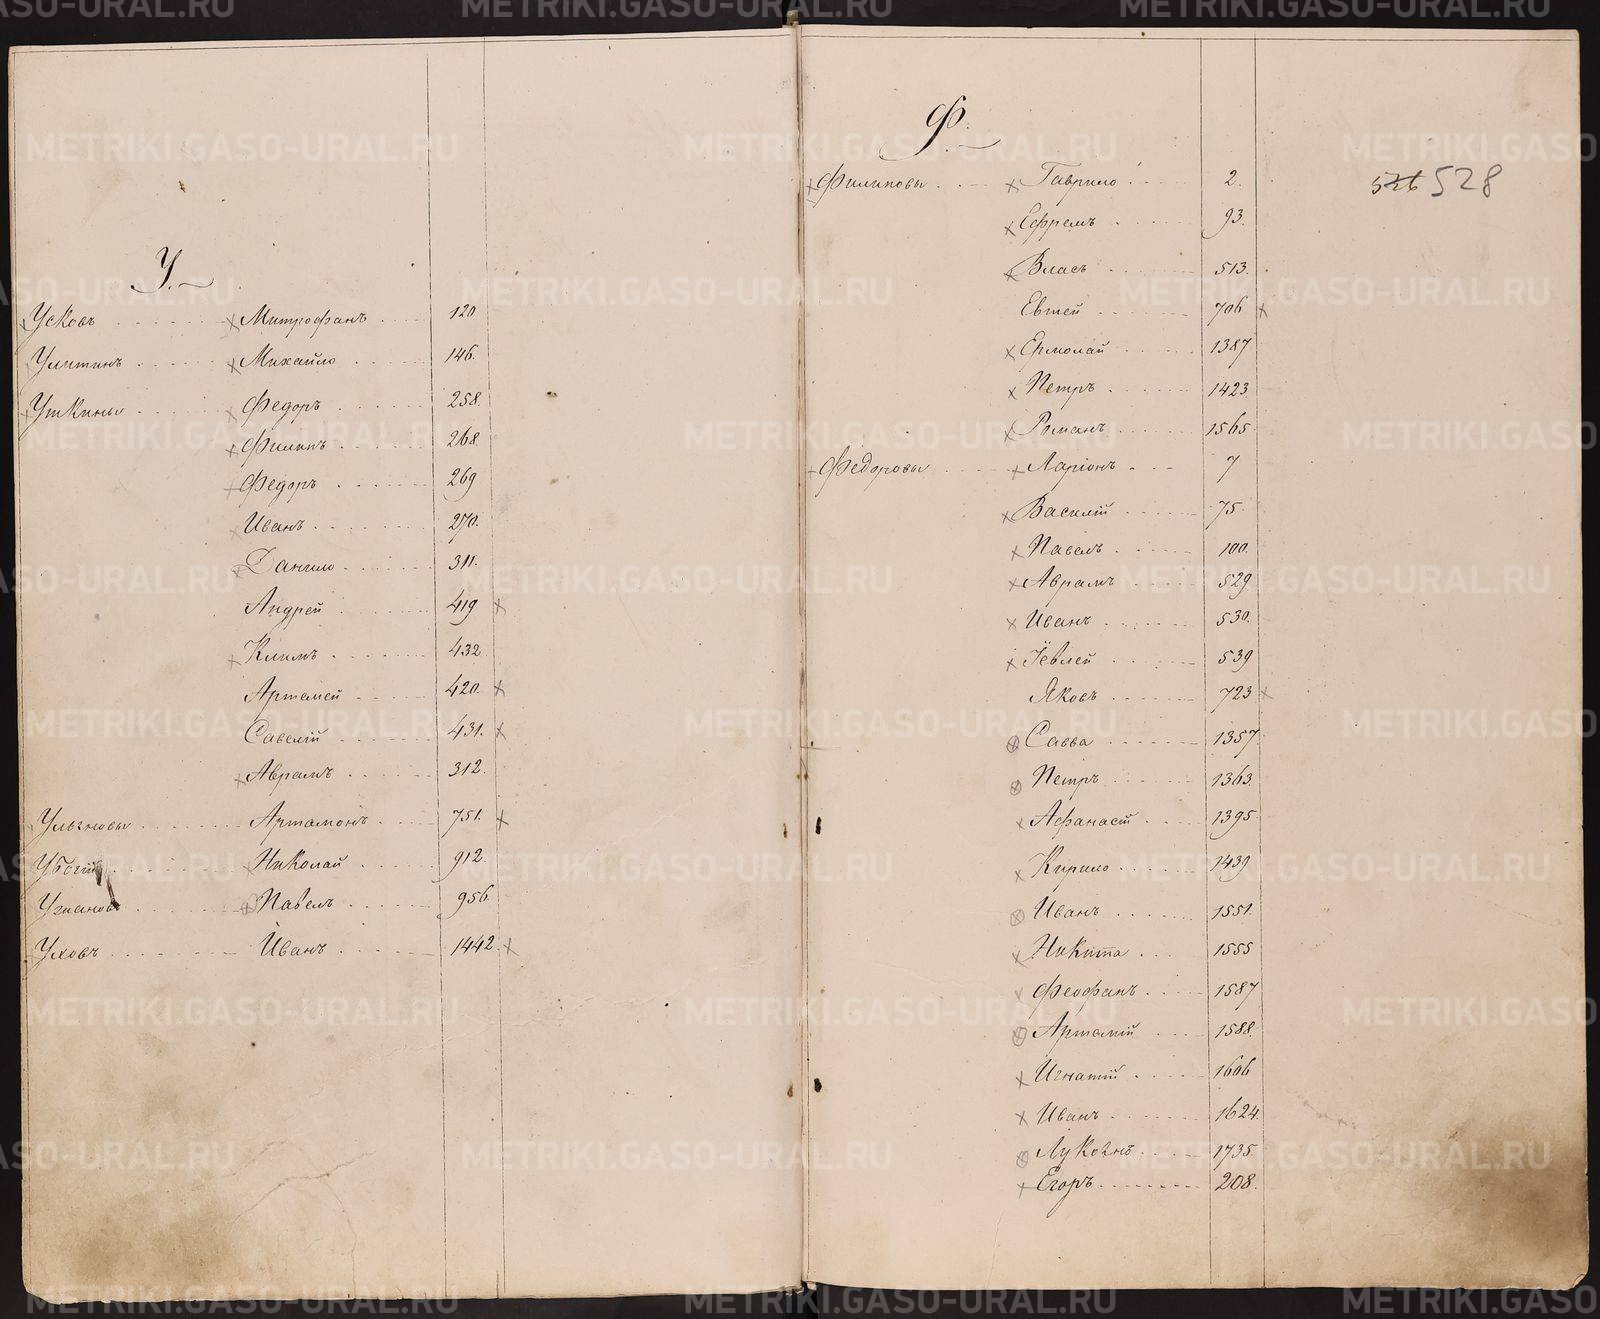 У.
Усковъ Митрофанъ 120
Улитинъ Михайло 146.
Уткины Федоръ 258.
Филипъ 268
Федоръ 269
Иванъ 270.
Данило 311.
Андрей 419
Климъ 432
Артемей 420.
Савелій 431.
Аврамъ 312.
Артамонъ 751.
Николай 912.
Павелъ 956
Уховъ Иванъ 1442.
Ф.
Филиповы Гаврило 2.
526 528
Ефремъ 93.
Власъ 513.
Евтей 706
Ермолай 1387
Петръ 1423
Романъ 1565
Федоровы Ларіонъ 7
Василій 75
Павелъ 100.
Аврамъ 529.
Иванъ 530.
539
Яковъ 723
Савва 1357
Петръ 1363.
Афанасій 1395
Кирило 1439
Иванъ 1551.
Никита 1555
Феофанъ 1587
Артемій 1588.
Игнатій 1606
Иванъ 1624
1735
Егоръ 208.
METRIKI.GASO-URAL.RU